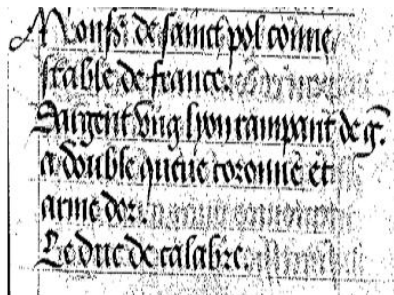 Monsr. de sainct pol conne
stable de france.
Dargent ung lyon rampant de g.
a double queue coronne et
arme dor.
Le duc de calabre.